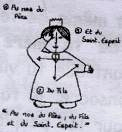 ① Au nom du
Père
③ Et du
Saint. Esprit
② Du Fils
"Au nom du Père, du Fils
et du Saint. Esprit."